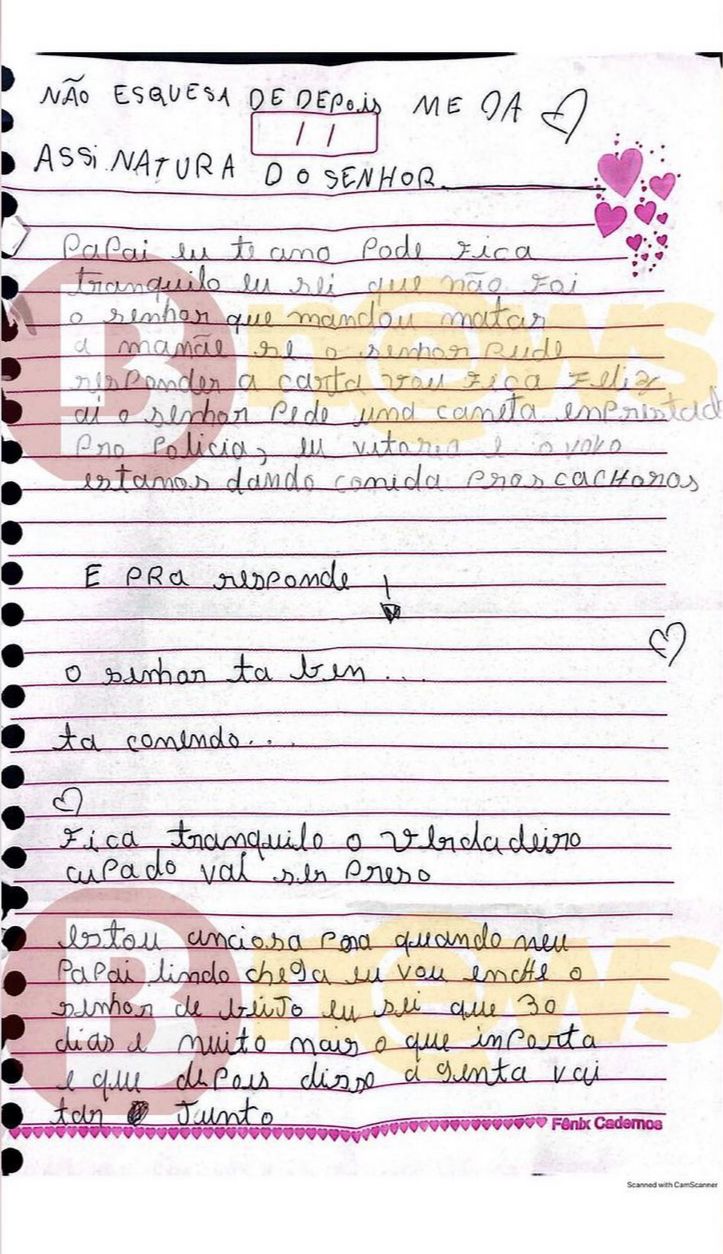 NÃO ESQUESA DE DEPOis ME DA
/ /
ASSiNATURA DO SENHOR
PaPai eu te amo Pode Fica
tranquilo eu sei que não Foi
o senhor que mandou matar
a mamãe se o senhor Pude
responder a carta vou Fica Feliz
ai o senhor Pede uma caneta emprestad
Pro Policia, eu vitoria e o vovo
estamos dando comida Pros cacHoros
E PRa responde
o senhor ta ben...
ta comendo...
Fica tranquilo o verdadeiro
cuPado vai ser Preso
estou anciosa Para quando meu
PaPai lindo chega eu vou encHe o
senhor de beiJo eu sei que 30
dias e muito mais o que inPorta
e que depois disso a genta vai
tar Junto
Fênix Cadernos
Scanned with CamScanner
B n@ws
B n@ws